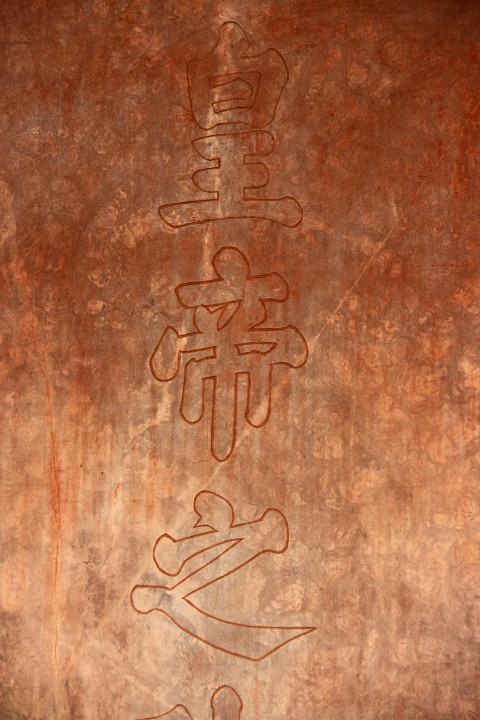 皇帝之